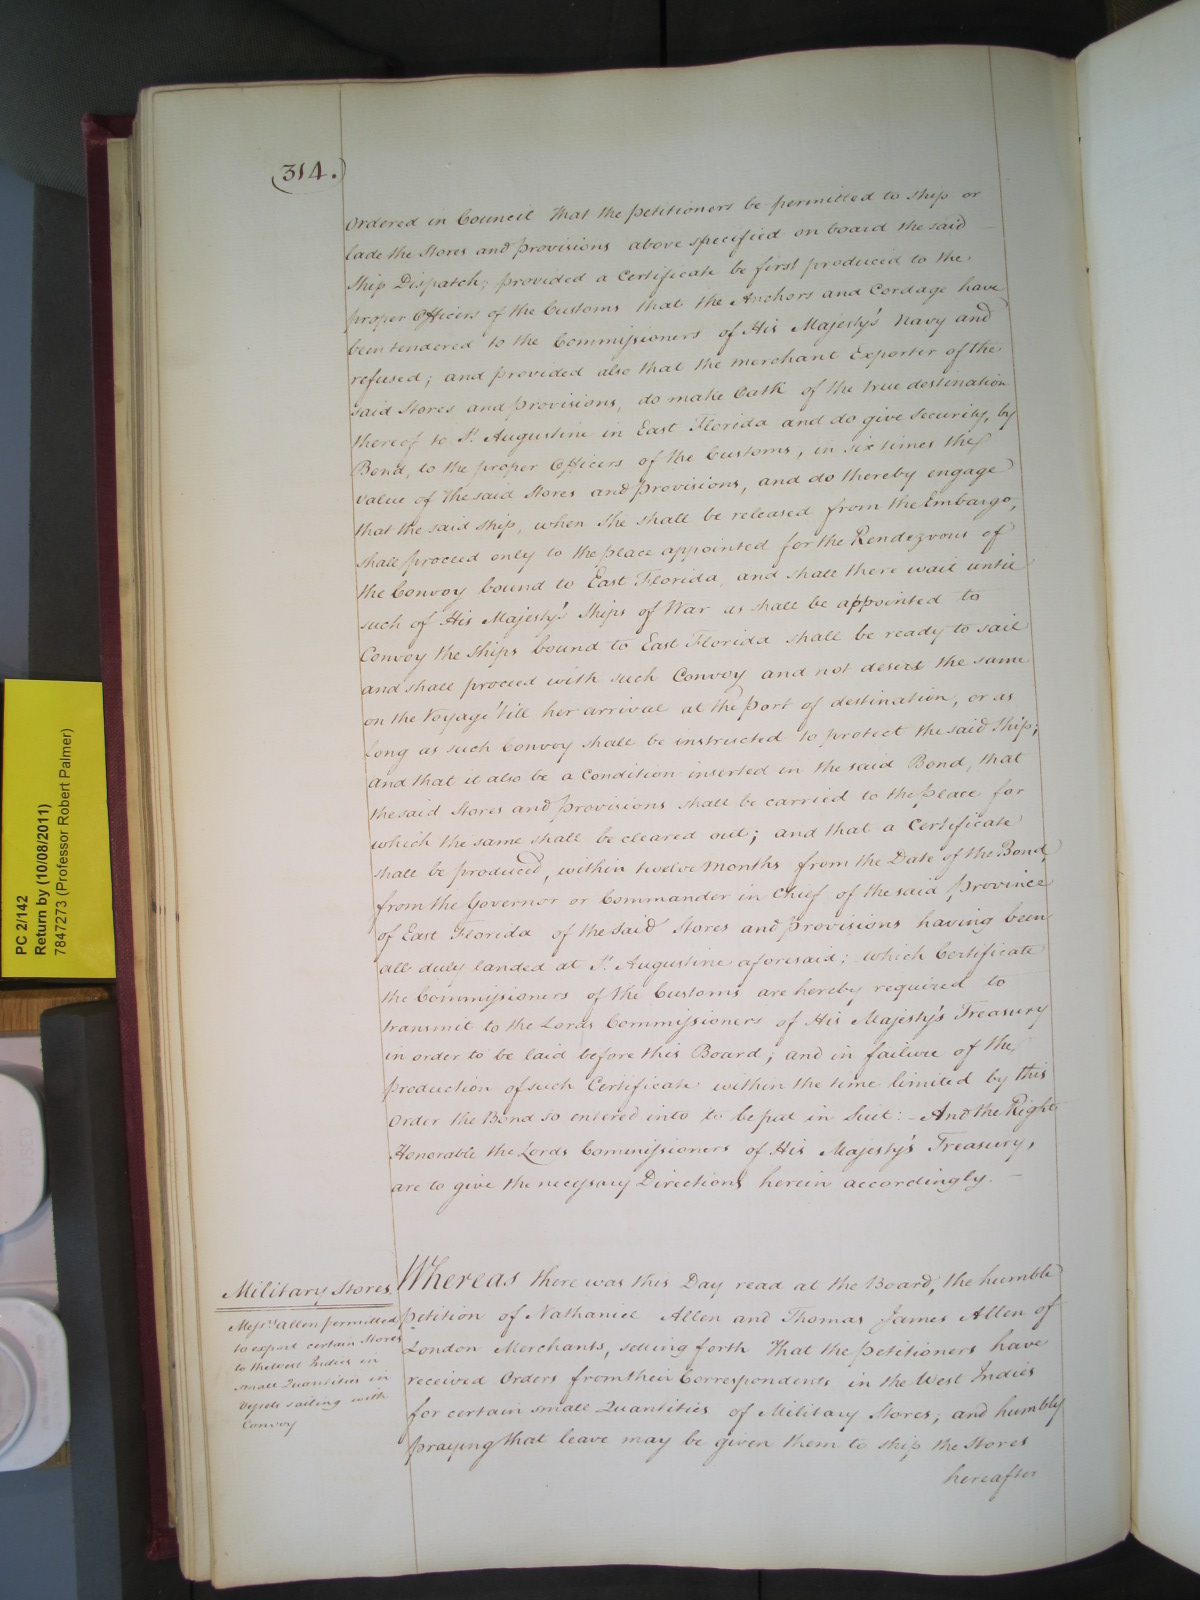 (314.)
Ordered in Council that the petitioners be permitted to ship or
lade the Stores and provisions above specified on board the said
Ship Dispatch; provided a Certificate be first produced to the
proper Officers of the Customs that the Anchors and Cordage have
been tendered to the Commissioners of His Majesty's Navy and
refused; and provided also that the merchant Exporter of the
said Stores and provisions, do make Oath of the true destination
thereof to St. Augustine in East Florida and do give security, by
Bond, to the proper Officers of the Customs, in six times the
value of the said Stores and provisions, and do thereby engage
that the said ship, when she shall be released from the Embargo,
shall proceed only to the place appointed for the Rendezvous of
the Convoy bound to East Florida, and shall there wait until
such of His Majesty's Ships of War as shall be appointed to
Convoy the Ships bound to East Florida shall be ready to sail
and shall proceed with such Convoy and not desert the same
on the Voyage 'till her arrival at the Port of destination, or as
long as such Convoy shall be instructed to protect the said Ship;
and that it also be a Condition inserted in the said Bond, that
the said Stores and provisions shall be carried to the Place for
which the same shall be cleared out; and that a Certificate
shall be produced, within twelve Months from the Date of the Bond,
from the Governor or Commander in Chief of the said province
of East Florida of the said Stores and provisions having been
all duly landed at St. Augustine aforesaid; which Certificate
the Commissioners of the Customs are hereby required to
transmit to the Lords Commissioners of His Majesty's Treasury
in order to be laid before this Board; and in failure of the
production of such Certificate within the time limited by this
Order the Bond so entered into to be put in Suit:- And the Right
Honorable the Lords Commissioners of His Majesty's Treasury,
are to give the necessary Directions herein accordingly. -
Military Stores.
Messrs. Allen permitted
to export certain Stores
to the West Indies in
small Quantities in
Vessels sailing with
Convoy
Whereas there was this Day read at the Board, the humble
petition of Nathaniel Allen and Thomas James Allen of
London Merchants, setting forth That the petitioners have
received Orders from their Correspondents in the West Indies
for certain small Quantities of Military Stores; and humbly
praying that leave may be given them to ship the Stores
hereafter
PC 2/142
Return by (10/08/2011)
7847273 (Professor Robert Palmer)